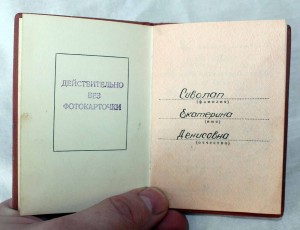 ДЕЙСТВИТЕЛЬНО
БЕЗ
ФОТОКАРТОЧКИ
Сиволап
(фамилия)
Екатерина
(имя)
Денисовна
(отчество)